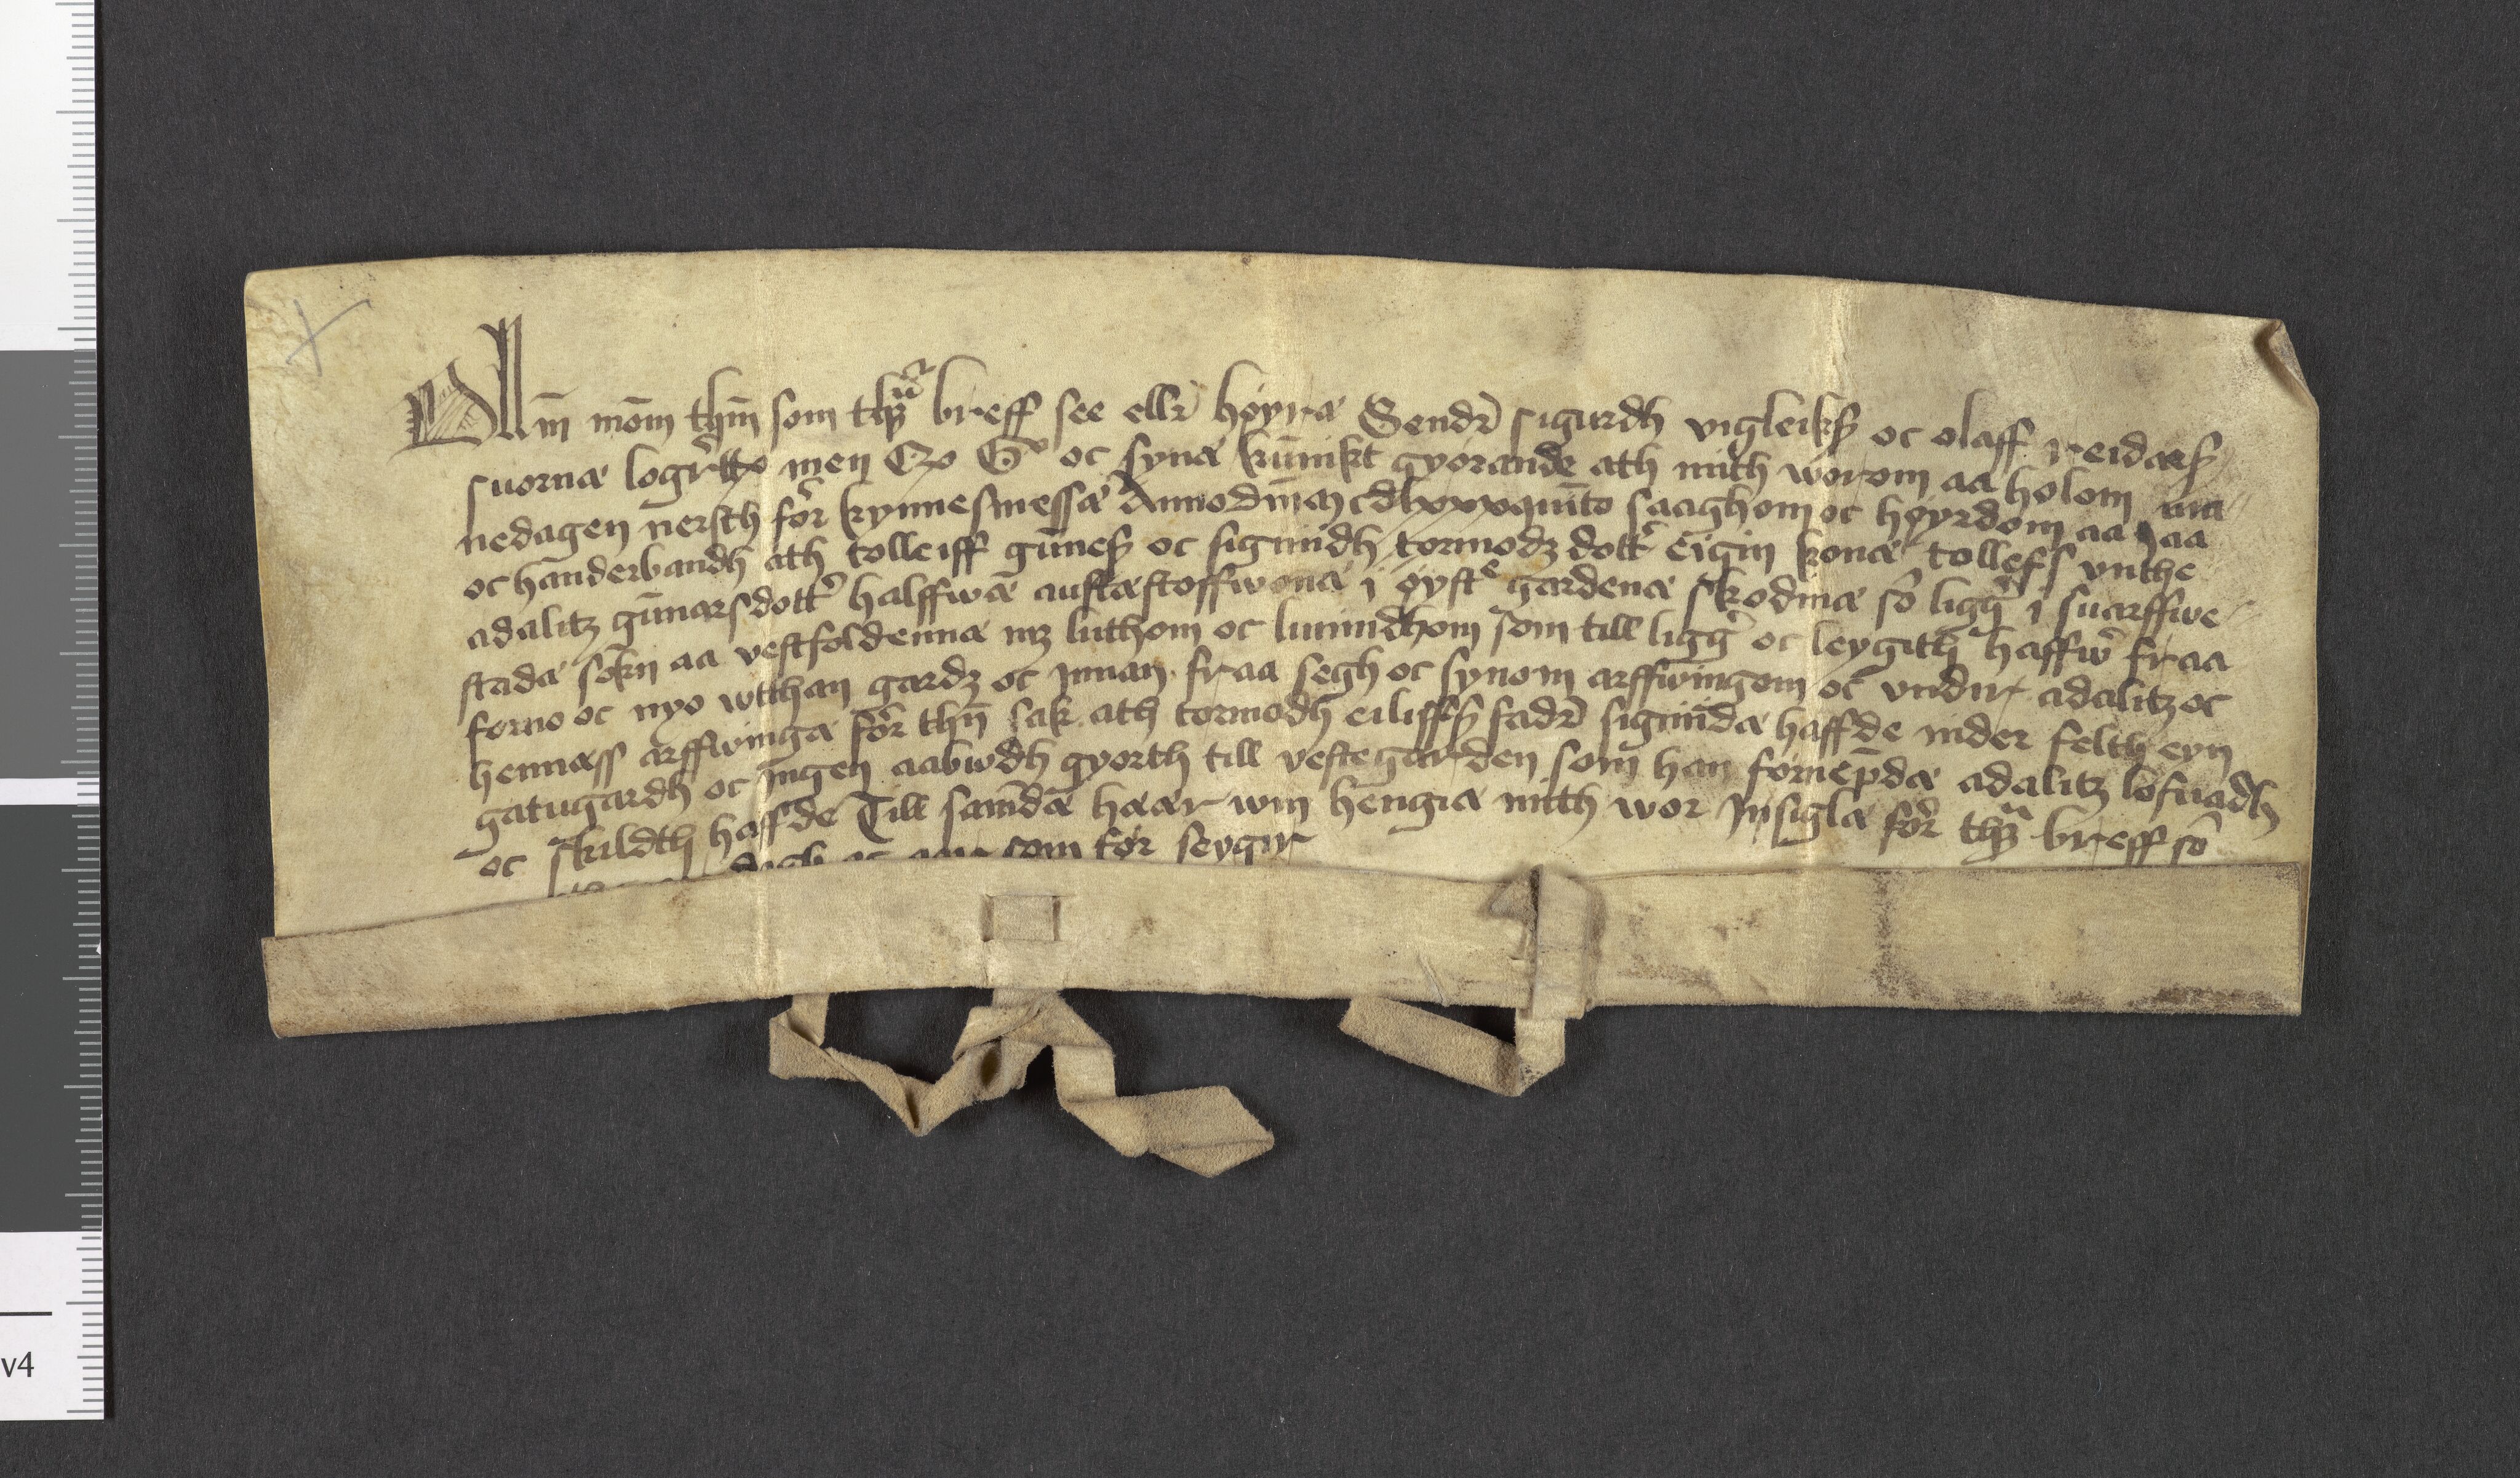 Allm̄ mōm thm̄ som thꝫ breff see ellr høyra Sendr̄ sigurdh vigleikß oc olaff reidarß
suorna logr̄tto men Q z G oc syna kūnikt gyørande ath mith worom aa holom ma
nedagen nersth før kynnesmessæ Anno dm̄ mcdlxxxquīto saaghom oc høyrdom aa jaa
oc handerbandh ath tolleiff gūneß oc sigmidh tormodz dottr̄ eigin kona tollefs vnthe
adalitz gūnarsdottr̄ halffwā austæstoffwona i øystegardena skodma sō liggr̄ i suarffwe
stada søkn aa vestfoldenna mz luthom oc lunnidhom som till liggr̄ oc leygith haffwr̄ fraa
forno oc nyo wtthan gardz oc innan fraa segh oc synom arffwingom oc vndir adalitz oc
hennæss arffwinga før thn̄ sak ath tormodh eiliffß fadr̄ siginda haffde nider felth eyn
gatugardh oc ingen aabwdh gyorth till vestegarden som han fornēpda adalitz lofuadh
oc skildth haffde Till samīda haar win hengia mith wor Insigla før thꝫ breff sō
dagh oc aar som før seygir
v4